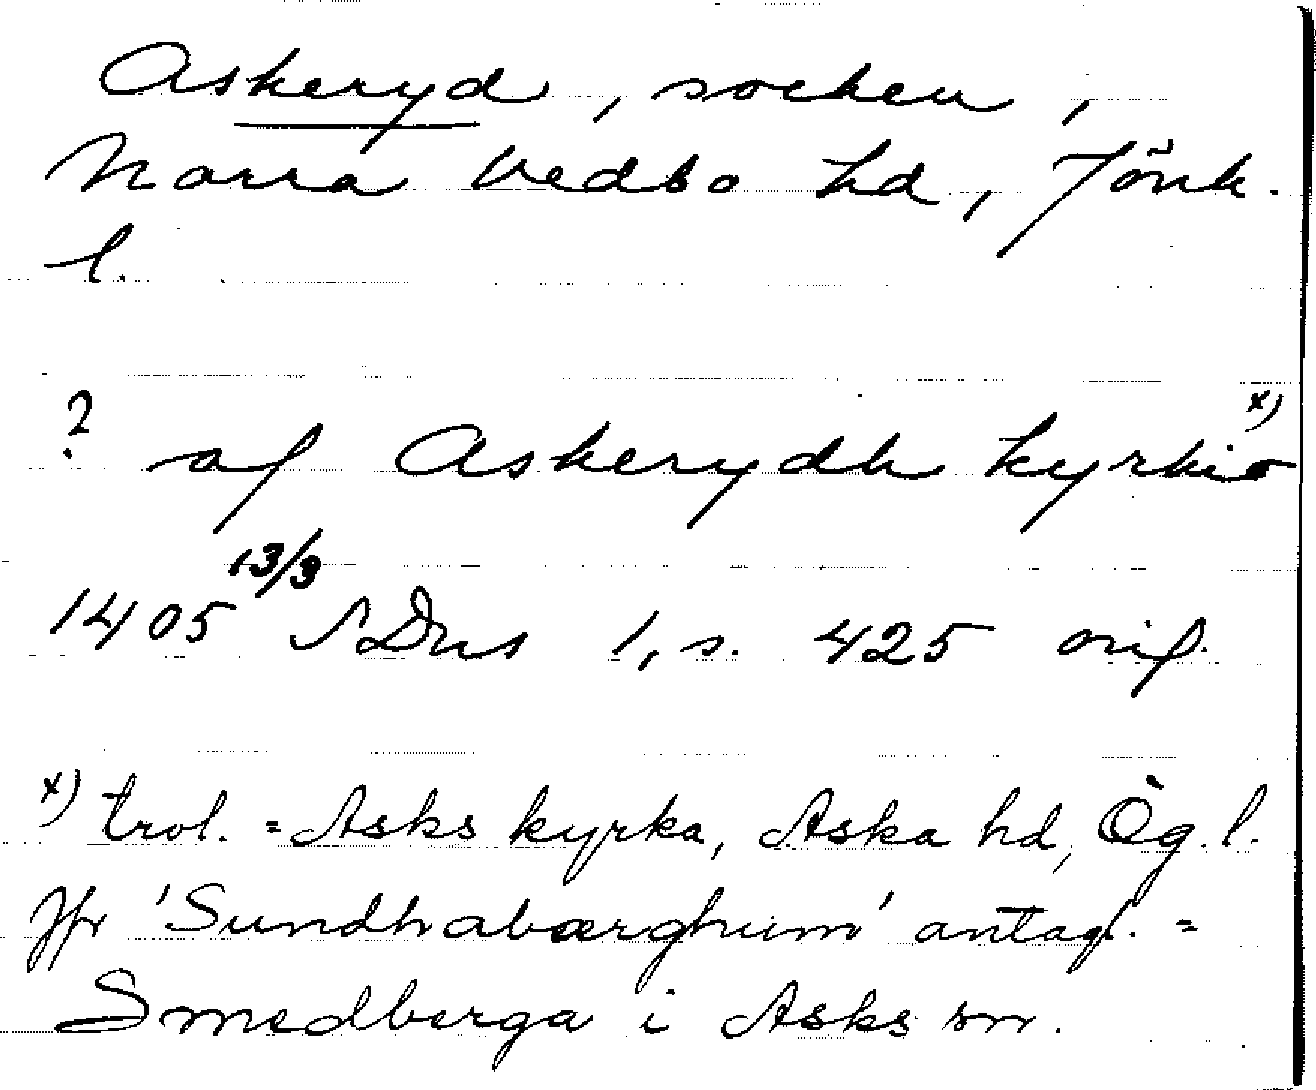 Askeryd, socken,
Norra Vedbo hd, Jönk.
l.
? af Askerydh kyrkio x)
1405 13/3 SDns 1, s. 425 orig.
x) trol. = Asks kyrka, Aska hd, Ög. l.
Jfr 'Sundhabærghum' antagl. =
Smedberga i Asks sn.